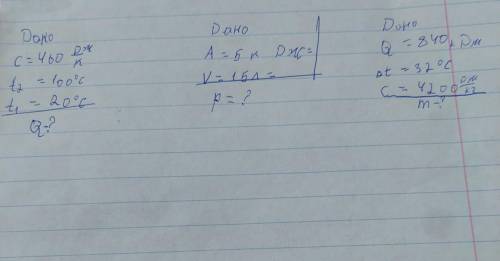 Дано
c = 460 Дж/К
t₂ = 100°C
t₁ = 20°C
Q = ?
Дано
A = 5 к Дж =
V = 15л =
p = ?
Дано
Q = 840 Дж
Δt = 32°C
C = 4200 Дж/кг
m = ?